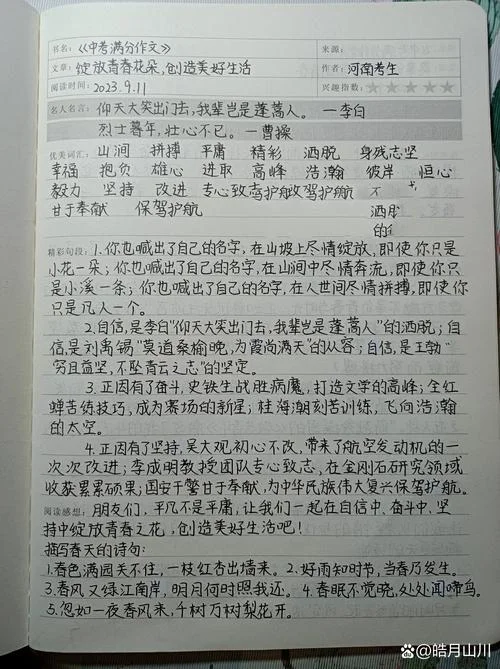 书名:《中考满分作文》 来源:
文章: 绽放青春花朵,创造美好生活 作者: 河南考生
阅读时间: 2023.9.11 兴趣指数: ★★★★★
名人名言: 仰天大笑出门去,我辈岂是蓬蒿人。 —李白
烈士暮年,壮心不已。 —曹操
优美词汇: 山涧 拼搏 平庸 精彩 洒脱 身残志坚
幸福 抱负 雄心 进取 高峰 浩瀚 彼岸 恒心
毅力 坚持 改进 专心致志 驾护航
甘于奉献 保驾护航 洒脱
的
精彩句段: 1.你也喊出了自己的名字,在山坡上尽情绽放,即使你只是
小花一朵;你也喊出了自己的名字,在山间中尽情奔流,即使你只
是小溪一条;你也喊出了自己的名字,在人世间尽情拼搏,即使你
只是凡人一个。
2.自信,是李白"仰天大笑出门去,我辈岂是蓬蒿人"的洒脱;自
信,是刘禹锡"莫道桑榆晚,为霞尚满天"的从容;自信,是王勃"
穷且益坚,不坠青云之志"的坚定。
3.正因有了奋斗,史铁生战胜病魔,打造文学的高峰;全红
蝉苦练技巧,成为赛场的新星;桂海潮刻苦训练,飞向浩瀚
的太空。
4.正因有了坚持,吴大观初心不改,带来了航空发动机的一
次次改进;李成明教授团队专心致志,在金刚石研究领域
收获累累硕果;国安干警甘于奉献,为中华民族伟大复兴保驾护航。
阅读感想: 朋友们,平凡不是平庸,让我们一起在自信中、奋斗中、坚
持中绽放青春之花,创造美好生活吧!
描写春天的诗句:
1.春色满园关不住,一枝红杏出墙来。2.好雨知时节,当春乃发生。
3.春风又绿江南岸,明月何时照我还。4.春眠不觉晓,处处闻啼鸟。
5.忽如一夜春风来,千树万树梨花开。
Baidu百科 @皓月山川